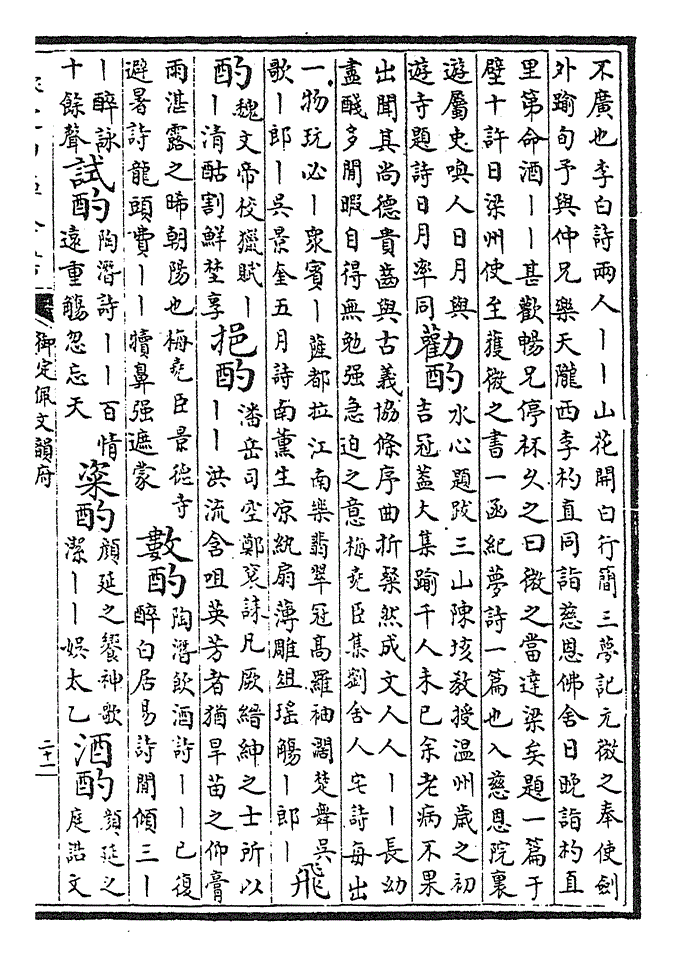 不廣也李白詩兩人丨丨山花開白行簡三夢記元微之奉使劍
外踰旬予與仲兄樂天隴西李杓直同詣慈恩佛舍日晚詣杓直
里第命酒丨丨甚歡暢兄停杯久之曰微之當達梁矣題一篇于
壁十許日梁州使至獲微之書一函紀夢詩一篇也入慈恩院裏
遊屬吏喚人日月與
遊寺題詩日月率同
勸酌
水心題跋三山陳垓教授温州歲之初
吉冠蓋大集踰千人未已余老病不果
出聞其尚德貴齒與古義協條序曲折粲然成文人人丨丨長幼
盡醆多閒暇自得無勉强急迫之意梅堯臣集劉舍人宅詩每出
一物玩必丨衆賓丨薩都拉江南樂翡翠冠髙羅袖濶楚舞吳
歌丨郎丨吳景奎五月詩南薰生凉紈扇薄雕俎瑤觴丨郎丨
飛
酌
魏文帝校獵賦丨
丨清酤割鮮埜享
挹酌
潘岳司空鄭袤誄凡厥縉紳之士所以
丨丨洪流含咀英芳者猶旱苗之仰膏
雨湛露之晞朝陽也梅堯臣景德寺
避暑詩龍頭費丨丨犢鼻强遮蒙
數酌
陶潛飲酒詩丨丨已復
醉白居易詩閒傾三丨
丨醉詠
十餘聲
試酌
陶潛詩丨丨百情
遠重觴忽忘天
粢酌
顔延之饗神歌
潔丨丨娯太乙
酒酌
顔延之
庭誥文
御定佩文韻府
二十二